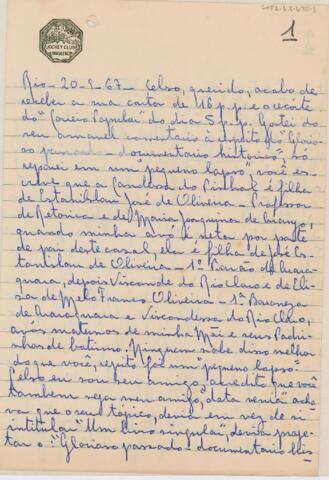 1
JOCKEY CLUB
BRASILEIRO
Rio - 20-5-67 - Celso, querido, acabo de
receber a sua carta de 16 p.p. e o recorte
do "Correio Popular" do dia 5 p.p. Gostei do
seu amavel comentario à respeito do "Glorio-
so passado - documentario historico", só
reparei em um "pequeno lapso", você es-
creveu que a Condessa do Pinhal é filha
de Estanislau José de Oliveira - Professor
de Retorica e de Maria Joaquina de Araujo,
quando minha avó é neta por parte
de pai deste casal, ela é filha de José Es-
tanislau de Oliveira - 1º Barão de Arara-
quara, depois Visconde do Rio Claro e de Eli-
sa de Mello Franco Oliveira - 1ª Baroneza
de Araraquara e Viscondessa do Rio Claro,
avós maternos de minha Mãe e seus Padri-
nhos de batismo. Ninguem sabe disso melhor
do que você, repito foi um "pequeno lapso".
Celso eu sou seu amigo, acredito que você
tambem seja meu amigo, "data venia" acha-
va que o seu tópico, devia em vez de si
intitular "Um livro singular", devia proje-
tar o: "Glorioso passado - documentario his-